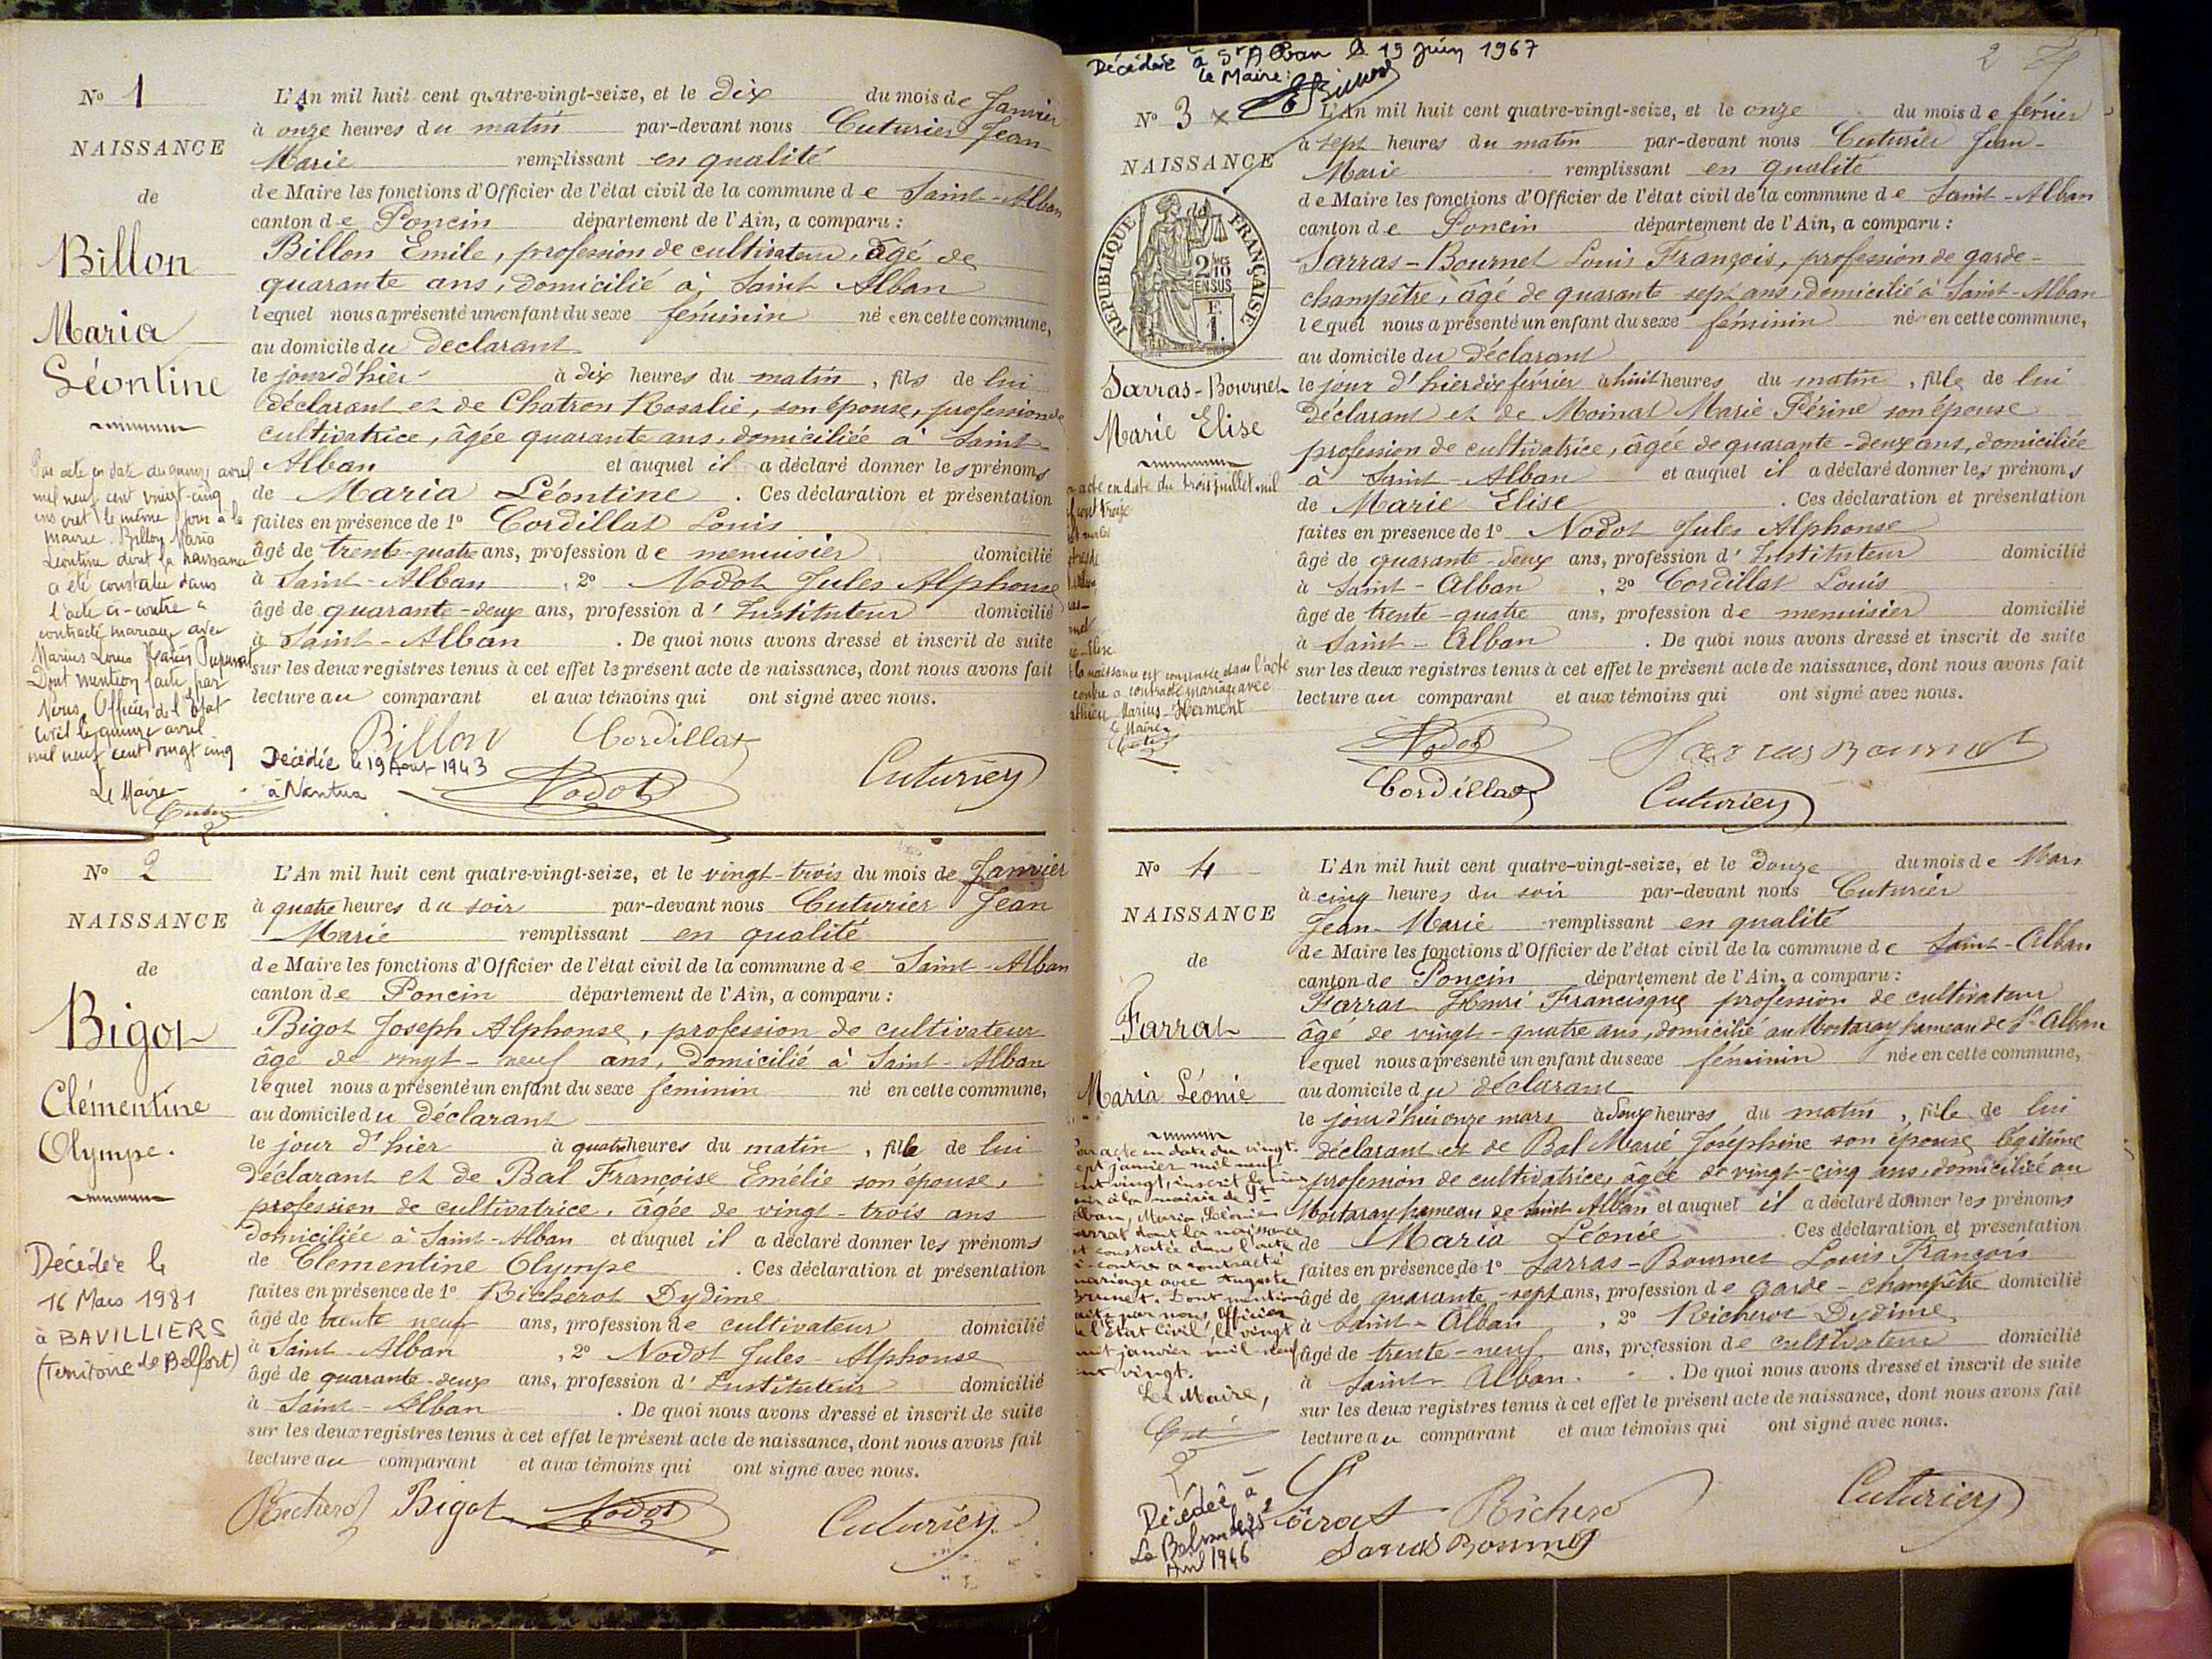 No 1
NAISSANCE
de
Billon
Maria
Léontine
Par acte en date du quinze avril
mil neuf cent vingt-cinq
inscrit le même jour à la
mairie. Billon Maria
Léontine dont la naissance
a été constatée dans
l'acte ci-contre a
contracté mariage avec
Marius Louis
Dont mention faite par
Nous, Officier de l'Etat
civil le quinze avril
mil neuf cent vingt cinq
Le Maire
L'An mil huit cent quatre-vingt-seize, et le dix du mois de Janvier
à onze heures du matin par-devant nous Cuturier Jean
Marie remplissant en qualité
de Maire les fonctions d'Officier de l'état civil de la commune de Saint-Alban
canton de Poncin département de l'Ain, a comparu :
Billon Emile, profession de cultivateur, âgé de
quarante ans, domicilié à Saint Alban
lequel nous a présenté un enfant du sexe féminin né e en cette commune,
au domicile du declarant
le jour d'hier à dix heures du matin, fils de lui
déclarant et de Chatron Rosalie, son épouse, profession de
cultivatrice, âgée quarante ans, domiciliée à Saint
Alban et auquel il a déclaré donner les prénoms
de Maria Léontine. Ces déclaration et présentation
faites en présence de 1o Cordillat Louis
âgé de trente-quatre ans, profession de menuisier domicilié
à Saint-Alban, 2o Nodot Jules Alphonse
âgé de quarante-deux ans, profession d'Instituteur domicilié
à Saint-Alban. De quoi nous avons dressé et inscrit de suite
sur les deux registres tenus à cet effet le présent acte de naissance, dont nous avons fait
lecture au comparant et aux témoins qui ont signé avec nous.
Billon Cordillat
Décédée le 19 Août 1943
à Nantua
Nodot Cuturier
No 2
NAISSANCE
de
Bigot
Clémentine
Olympe.
Décédée le
16 Mars 1981
à BAVILLIERS
(Territoire de Belfort)
L'An mil huit cent quatre-vingt-seize, et le vingt-trois du mois de Janvier
à quatre heures du soir par-devant nous Cuturier Jean
Marie remplissant en qualité
de Maire les fonctions d'Officier de l'état civil de la commune de Saint-Alban
canton de Poncin département de l'Ain, a comparu :
Bigot Joseph Alphonse, profession de cultivateur
âgé de vingt-neuf ans, domicilié à Saint-Alban
lequel nous a présenté un enfant du sexe féminin né en cette commune,
au domicile du déclarant
le jour d'hier à quatre heures du matin, fille de lui
déclarant et de Bal Françoise Emélie son épouse,
profession de cultivatrice, âgée de vingt-trois ans
domiciliée à Saint-Alban et auquel il a déclaré donner les prénoms
de Clementine Olympe. Ces déclaration et présentation
faites en présence de 1o Richerot Dydime
âgé de trente neuf ans, profession de cultivateur domicilié
à Saint-Alban, 2o Nodot Jules-Alphonse
âgé de quarante-deux ans, profession d'Instituteur domicilié
à Saint-Alban. De quoi nous avons dressé et inscrit de suite
sur les deux registres tenus à cet effet le présent acte de naissance, dont nous avons fait
lecture au comparant et aux témoins qui ont signé avec nous.
Richerot Bigot Nodot Cuturier
Décédée à St Alban le 19 Juin 1967
le Maire:
2
No 3
NAISSANCE
de
RÉPUBLIQUE FRANÇAISE
2/10 EN SUS
F. 1.
Sarras-Bournet
Marie Elise
acte en date du trois juillet mil
la naissance est constatée dans l'acte
contre a contracté mariage avec
Marius Herment
Le Maire
L'An mil huit cent quatre-vingt-seize, et le onze du mois de février
à sept heures du matin par-devant nous Cuturier Jean-
Marie remplissant en qualité
de Maire les fonctions d'Officier de l'état civil de la commune de Saint-Alban
canton de Poncin département de l'Ain, a comparu :
Sarras-Bournet Louis François, profession de garde-
champêtre, âgé de quarante sept ans, domicilié à Saint-Alban
lequel nous a présenté un enfant du sexe féminin née en cette commune,
au domicile du déclarant
le jour d'hier dix février à huit heures du matin, fille de lui
déclarant et de Moinat Marie Périne son épouse
profession de cultivatrice, âgée de quarante-deux ans, domiciliée
à Saint-Alban et auquel il a déclaré donner les prénoms
de Marie Elise. Ces déclaration et présentation
faites en présence de 1o Nodot Jules Alphonse
âgé de quarante-deux ans, profession d'Instituteur domicilié
à Saint-Alban, 2o Cordillat Louis
âgé de trente-quatre ans, profession de menuisier domicilié
à Saint-Alban. De quoi nous avons dressé et inscrit de suite
sur les deux registres tenus à cet effet le présent acte de naissance, dont nous avons fait
lecture au comparant et aux témoins qui ont signé avec nous.
Nodot Sarras Bournet
Cordillat Cuturier
No 4
NAISSANCE
de
Farrat
Maria Léonie
Par acte en date du vingt-
sept janvier mil neuf
cent vingt, inscrit le
à la mairie de St
Alban, Maria Léonie
Farrat dont la naissance
est constatée dans l'acte
ci-contre a contracté
mariage avec Auguste
Brunet. Dont mention
faite par nous Officier
de l'Etat Civil le vingt
huit janvier mil neuf
cent vingt.
Le Maire,
Décédée à
Avril 1946
L'An mil huit cent quatre-vingt-seize, et le douze du mois de Mars
à cinq heures du soir par-devant nous Cuturier
Jean-Marie remplissant en qualité
de Maire les fonctions d'Officier de l'état civil de la commune de Saint-Alban
canton de Poncin département de l'Ain, a comparu :
Farrat Henri Francisque profession de cultivateur
âgé de vingt-quatre ans, domicilié au Mortaray hameau de St Alban
lequel nous a présenté un enfant du sexe féminin née en cette commune,
au domicile du déclarant
le jour d'hier onze mars à deux heures du matin, fille de lui
déclarant et de Bal Marie Joséphine son épouse légitime
profession de cultivatrice, âgée de vingt-cinq ans, domiciliée au
Mortaray hameau de Saint Alban et auquel il a déclaré donner les prénoms
de Maria Léonie. Ces déclaration et présentation
faites en présence de 1o Sarras-Bournet Louis François
âgé de quarante-sept ans, profession de garde-champêtre domicilié
à Saint-Alban, 2o Richerot Dydime
âgé de trente-neuf ans, profession de cultivateur domicilié
à Saint-Alban. De quoi nous avons dressé et inscrit de suite
sur les deux registres tenus à cet effet le présent acte de naissance, dont nous avons fait
lecture au comparant et aux témoins qui ont signé avec nous.
Farrat Richerot Cuturier
Sarras Bournet